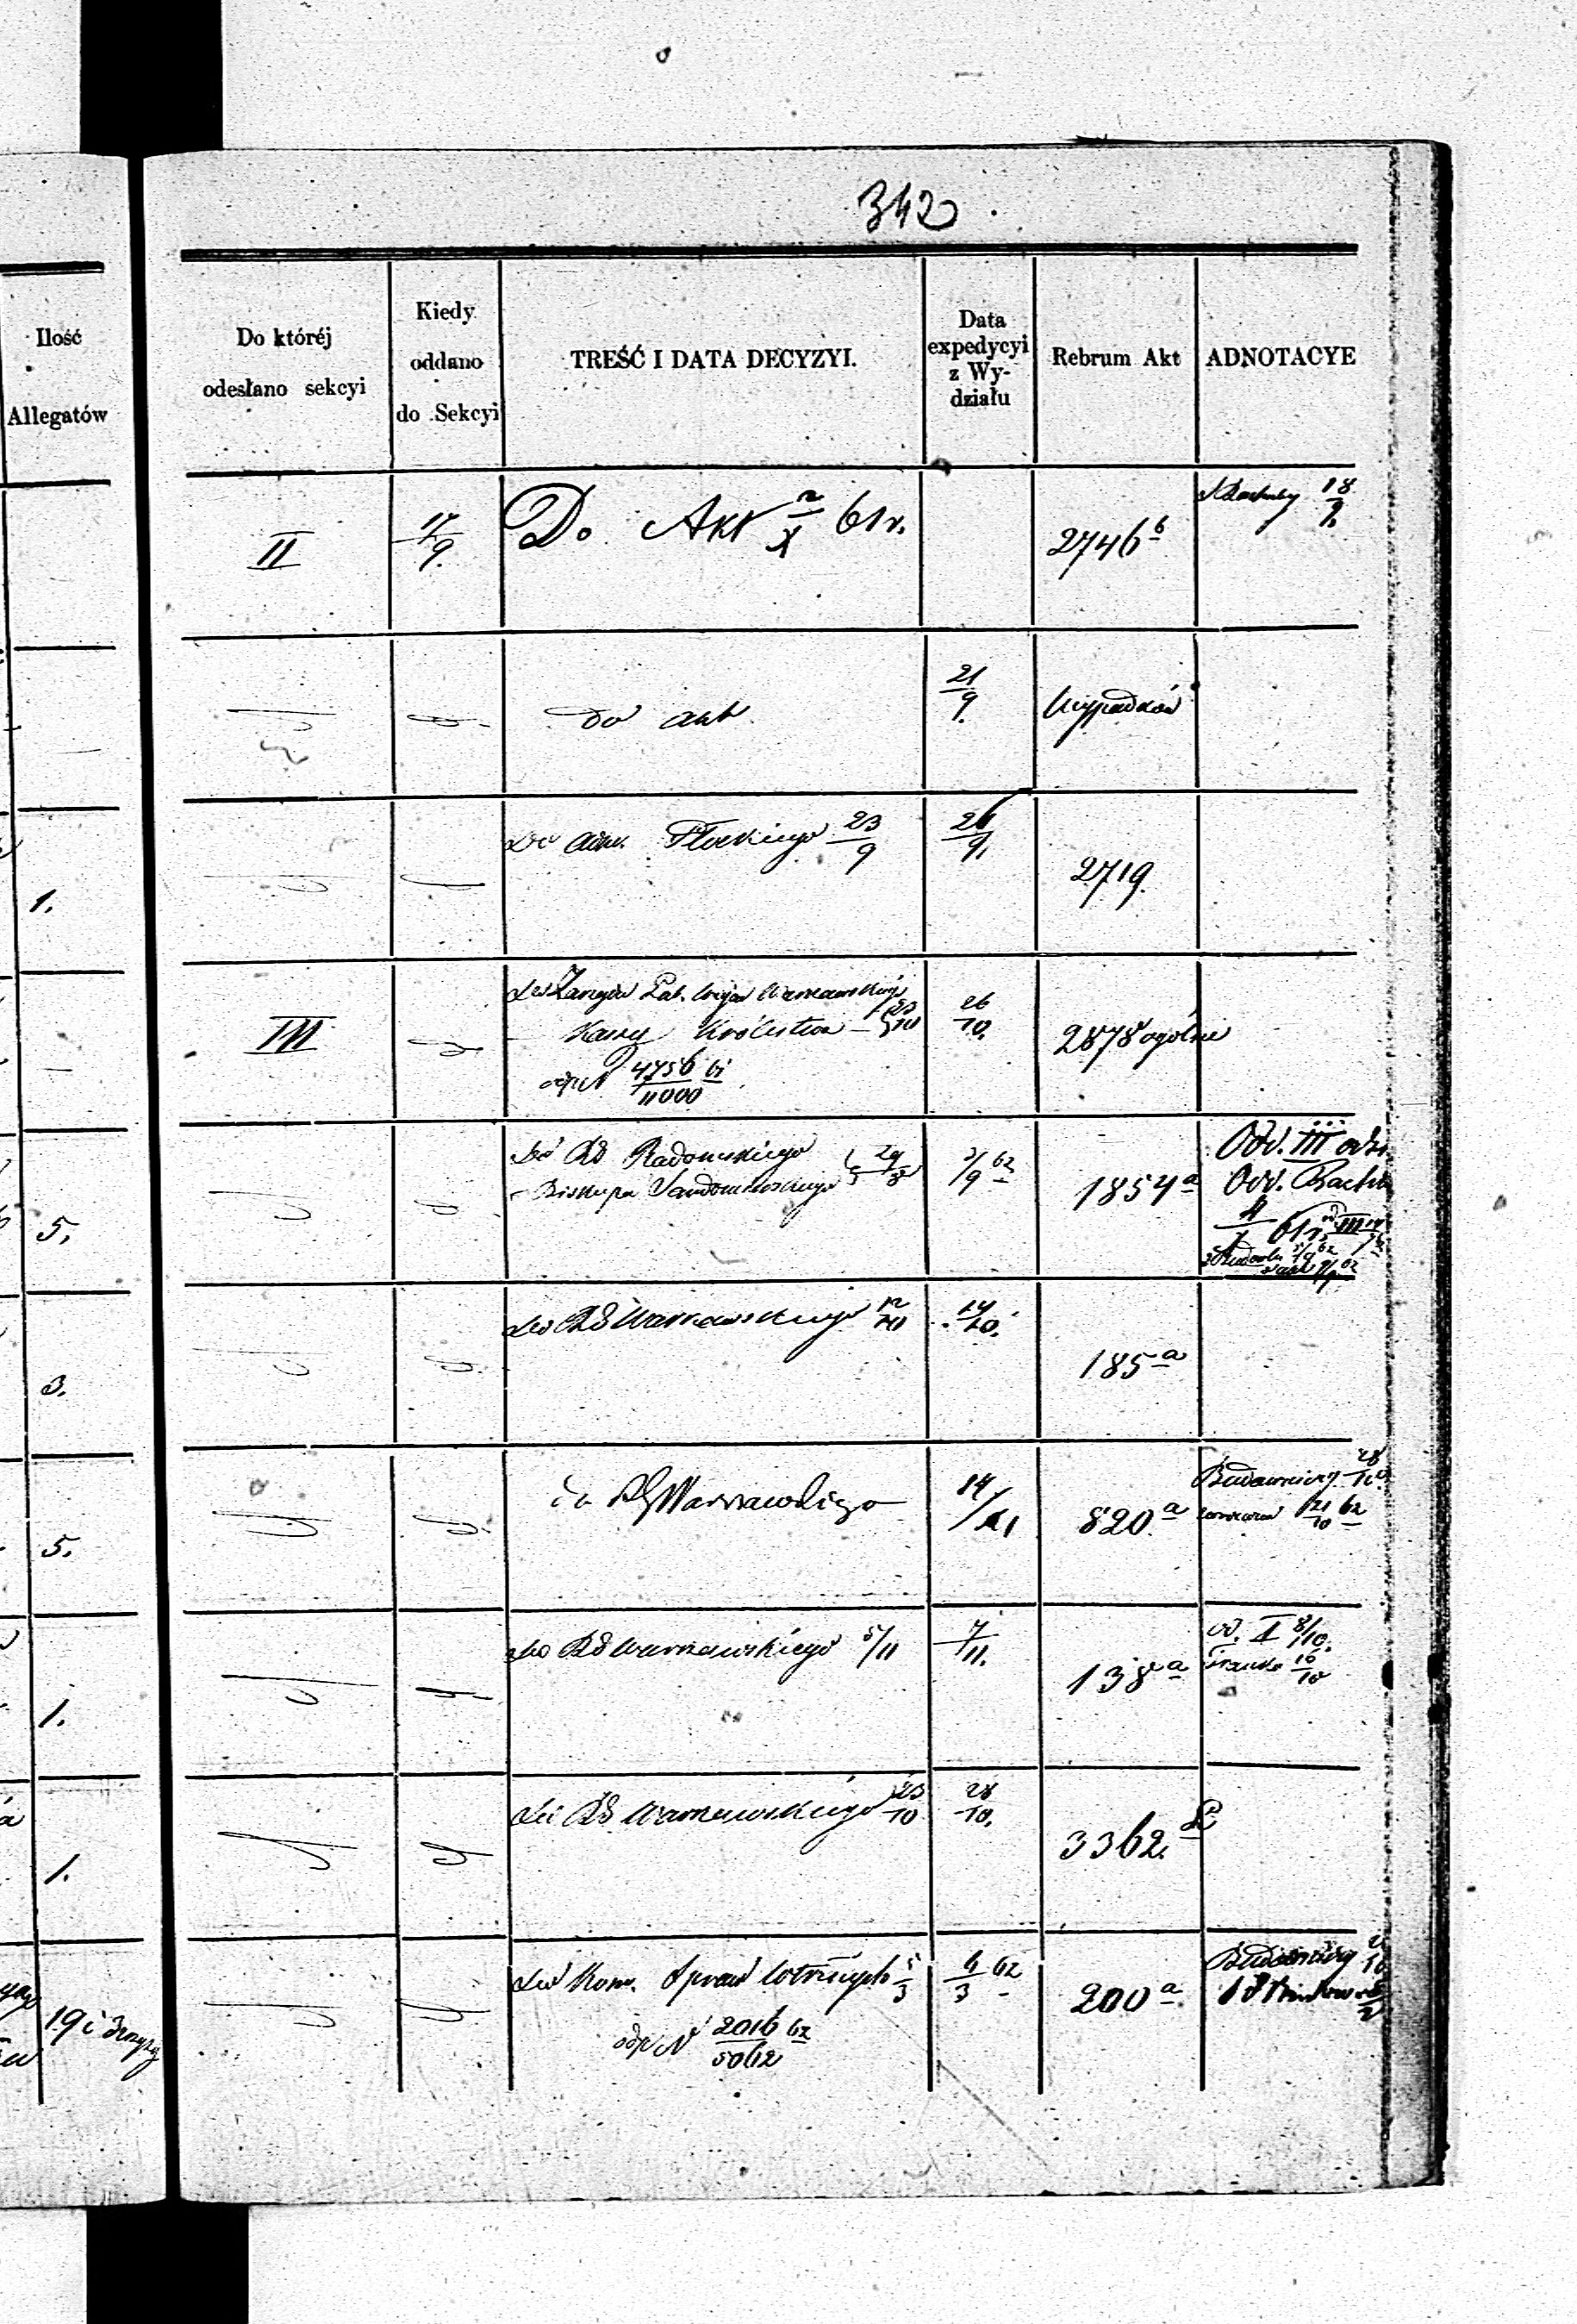 342
Ilość
Allegatów
Do któréj
odesłano sekcyi
Kiedy
oddano
do Sekcyi
TREŚĆ I DATA DECYZYI.
Data
expedycyi
z Wy-
działu
Rebrum Akt
ADNOTACYE
II
17/9.
Do Akt 2/X 61 r.
2746 b
18/9.
do akt
21/9.
Wypadków
1.
Płockiego 23/9
26/9.
2719.
III
Warszawskiej
Kassy Królestwa 23/10
odp N 4756/11000 61
26/10.
2878 ogólne
5.
Do RG Radomskiego
- Biskupa Sandomirskiego
5/9 62
1854 a
Odd. III
Odd. Rach
61 r.
3.
Do RG Warszawskiego 12/10
14/10.
185 a
5.
do RG Warszawskiego
14/XI
820 a
Budowniczy 28/10
21/10 62
1.
do RG Warszawskiego 5/11
7/11.
138 a
od. I 8/10.
16/10
1.
do RG Warszawskiego 23/10
28/10.
3362.
19 i
do Kom. Spraw Wewnętrznych 5/3
odp N 2016/5062 62
6/3 62
200 a
Budowniczy